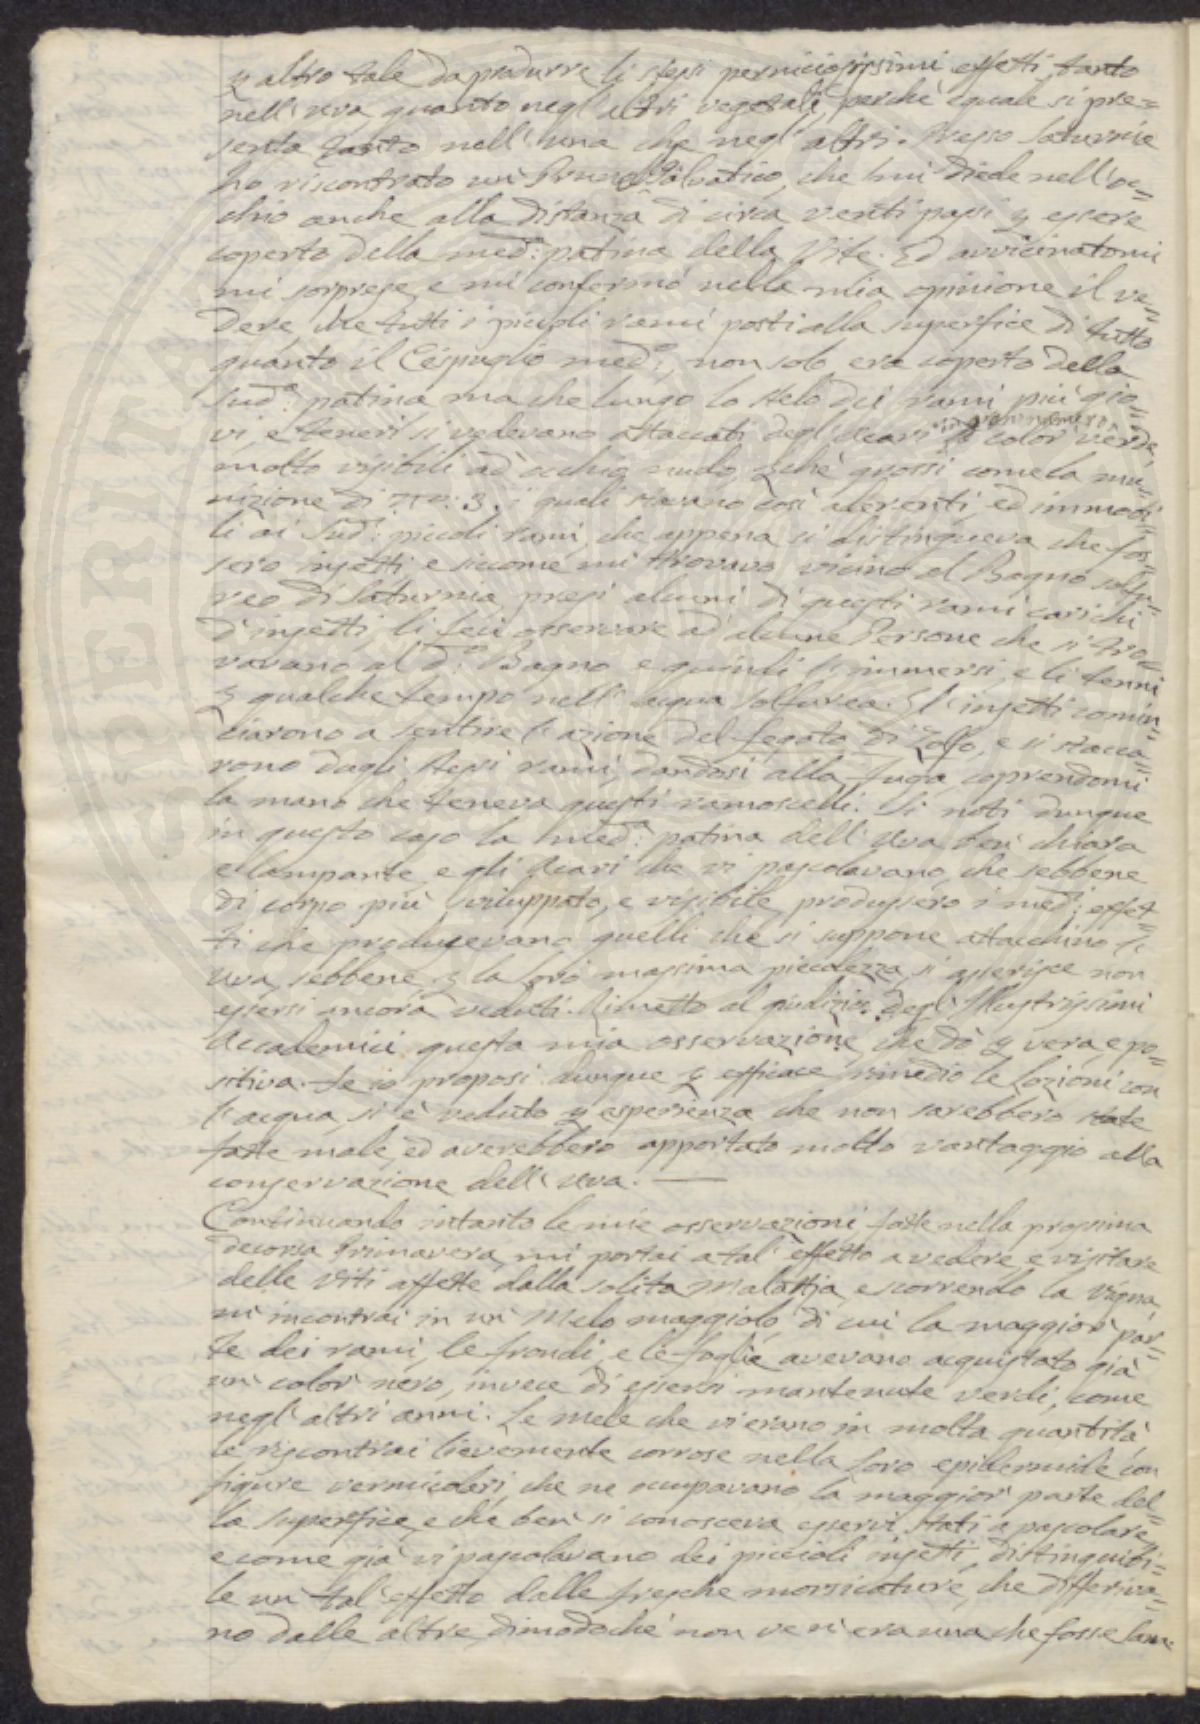 p altro tale da produrre li stessi perniciosissimi effetti tanto
nell'uva quanto negl'altri vegetali perchè eguale si pre=
senta tanto nell'una che negl'altri. Presso Saturnia
ho riscontrato un Pruno Salvatico, che mi diede nell'oc=
chio anche alla distanza di circa venti passi p essere
coperto della med:a patina della Vite. Ed avvicinatomi
mi sorprese, e mi confermò nella mia opinione il ve=
dere che tutti i piccoli rami posti alla superfice di tutto
quanto il Cespuglio med:o, non solo era coperto della
sud:a patina ma che lungo lo stelo dei rami più gio=
vi, e teneri si vedevano attaccati degl'Acari in gran numero di color verde,
molto visibili ad occhio nudo, pchè grossi come la mu=
nizione di N.ro 3. i quali stavano così aderenti, ed immobi=
li ai sud:i piccoli rami, che appena si distingueva che fos=
sero insetti e siccome mi trovavo vicino al Bagno solfu=
reo di Saturnia presi alcuni di questi rami carichi
d'insetti, li feci osservare ad alcune Persone che si tro=
vavano al d:o Bagno e quindi l'immersi, e li tenni
p qualche tempo nell'acqua solfurea. Gl'insetti comin=
ciarono a sentire l'azione del fegato di Zolfo, e si stacca=
rono dagli stessi rami, dandosi alla fuga, coprendomi
la mano che teneva questi ramoscelli. Si noti dunque
in questo caso la med:a patina dell'Uva ben chiara
e lampante, e gli Acari che vi pascolavano, che sebbene
di corpo più sviluppato, e visibile, produssero i med:i effet=
ti che producevano quelli che si suppone attacchino l'
uva, sebbene p la loro massima piccolezza, si asserisce non
essersi ancora veduti. Rimetto al giudizio degl'Illustrissimi
Accademici questa mia osservazione, che dò p vera e po=
sitiva. Se io proposi dunque p efficace rimedio le Lozioni con
l'acqua, si è veduto p esperienza che non sarebbero state
fatte male, ed averebbero apportato molto vantaggio alla
conservazione dell'Uva. —
Continuando intanto le mie osservazioni fatte nella prossima
decorsa Primavera, mi portai a tal'effetto a vedere, e visitare
delle Viti affette dalla solita Malattia, e scorrendo la Vigna,
mi incontrai in un Melo maggiolo, di cui la maggior par=
te dei rami, le frondi, e le foglie avevano acquistato già
un color nero, invece di essersi mantenute verdi, come
negl'altri anni. Le mele che vi erano in molta quantità
le riscontrai lievemente corrose nella loro epidermide con
figure vermicolari, che ne occupavano la maggior parte del=
la superfice, e che ben si conosceva esservi stati a pascolare,
e come già vi pascolavano dei piccioli insetti, distinguibi=
le un tal'effetto dalle fresche morsicature, che differiva=
no dalle altre, dimodochè non ve n'era una che fosse sana